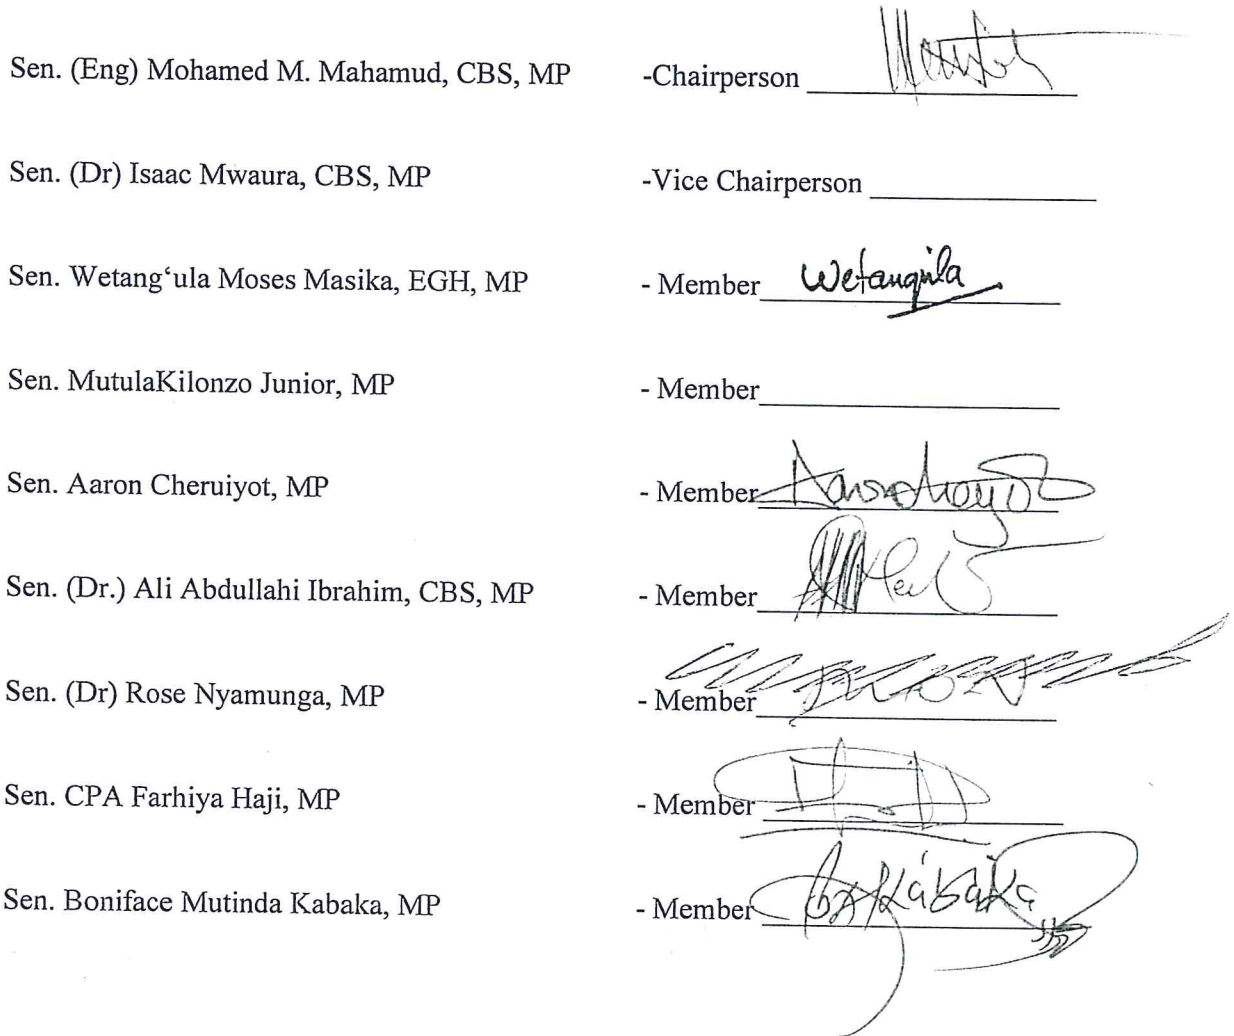 Sen. (Eng) Mohamed M. Mahamud, CBS, MP -Chairperson
Sen. (Dr) Isaac Mwaura, CBS, MP -Vice Chairperson
Sen. Wetang‘ula Moses Masika, EGH, MP - Member Wetangula
Sen. MutulaKilonzo Junior, MP - Member
Sen. Aaron Cheruiyot, MP - Member
Sen. (Dr.) Ali Abdullahi Ibrahim, CBS, MP - Member
Sen. (Dr) Rose Nyamunga, MP - Member
Sen. CPA Farhiya Haji, MP - Member
Sen. Boniface Mutinda Kabaka, MP - Member Kabaka